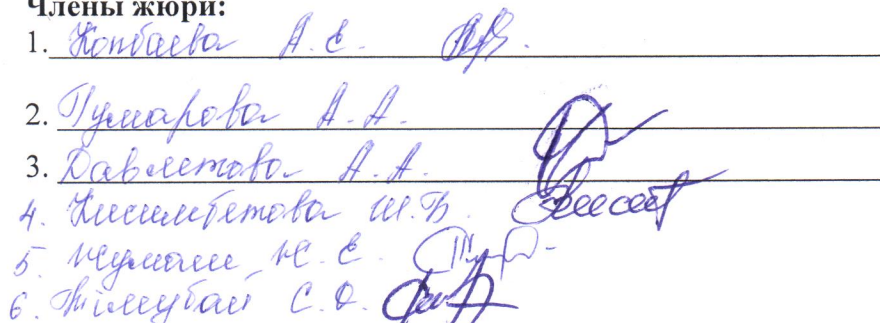 Члены жюри:
1. Копбаева А.Е.
2. Гумарова А.А.
3. Давлетова А.А.
4. Кисимбетова Ш.Б.
5. Жумаш Ж.Е.
6. С.О.